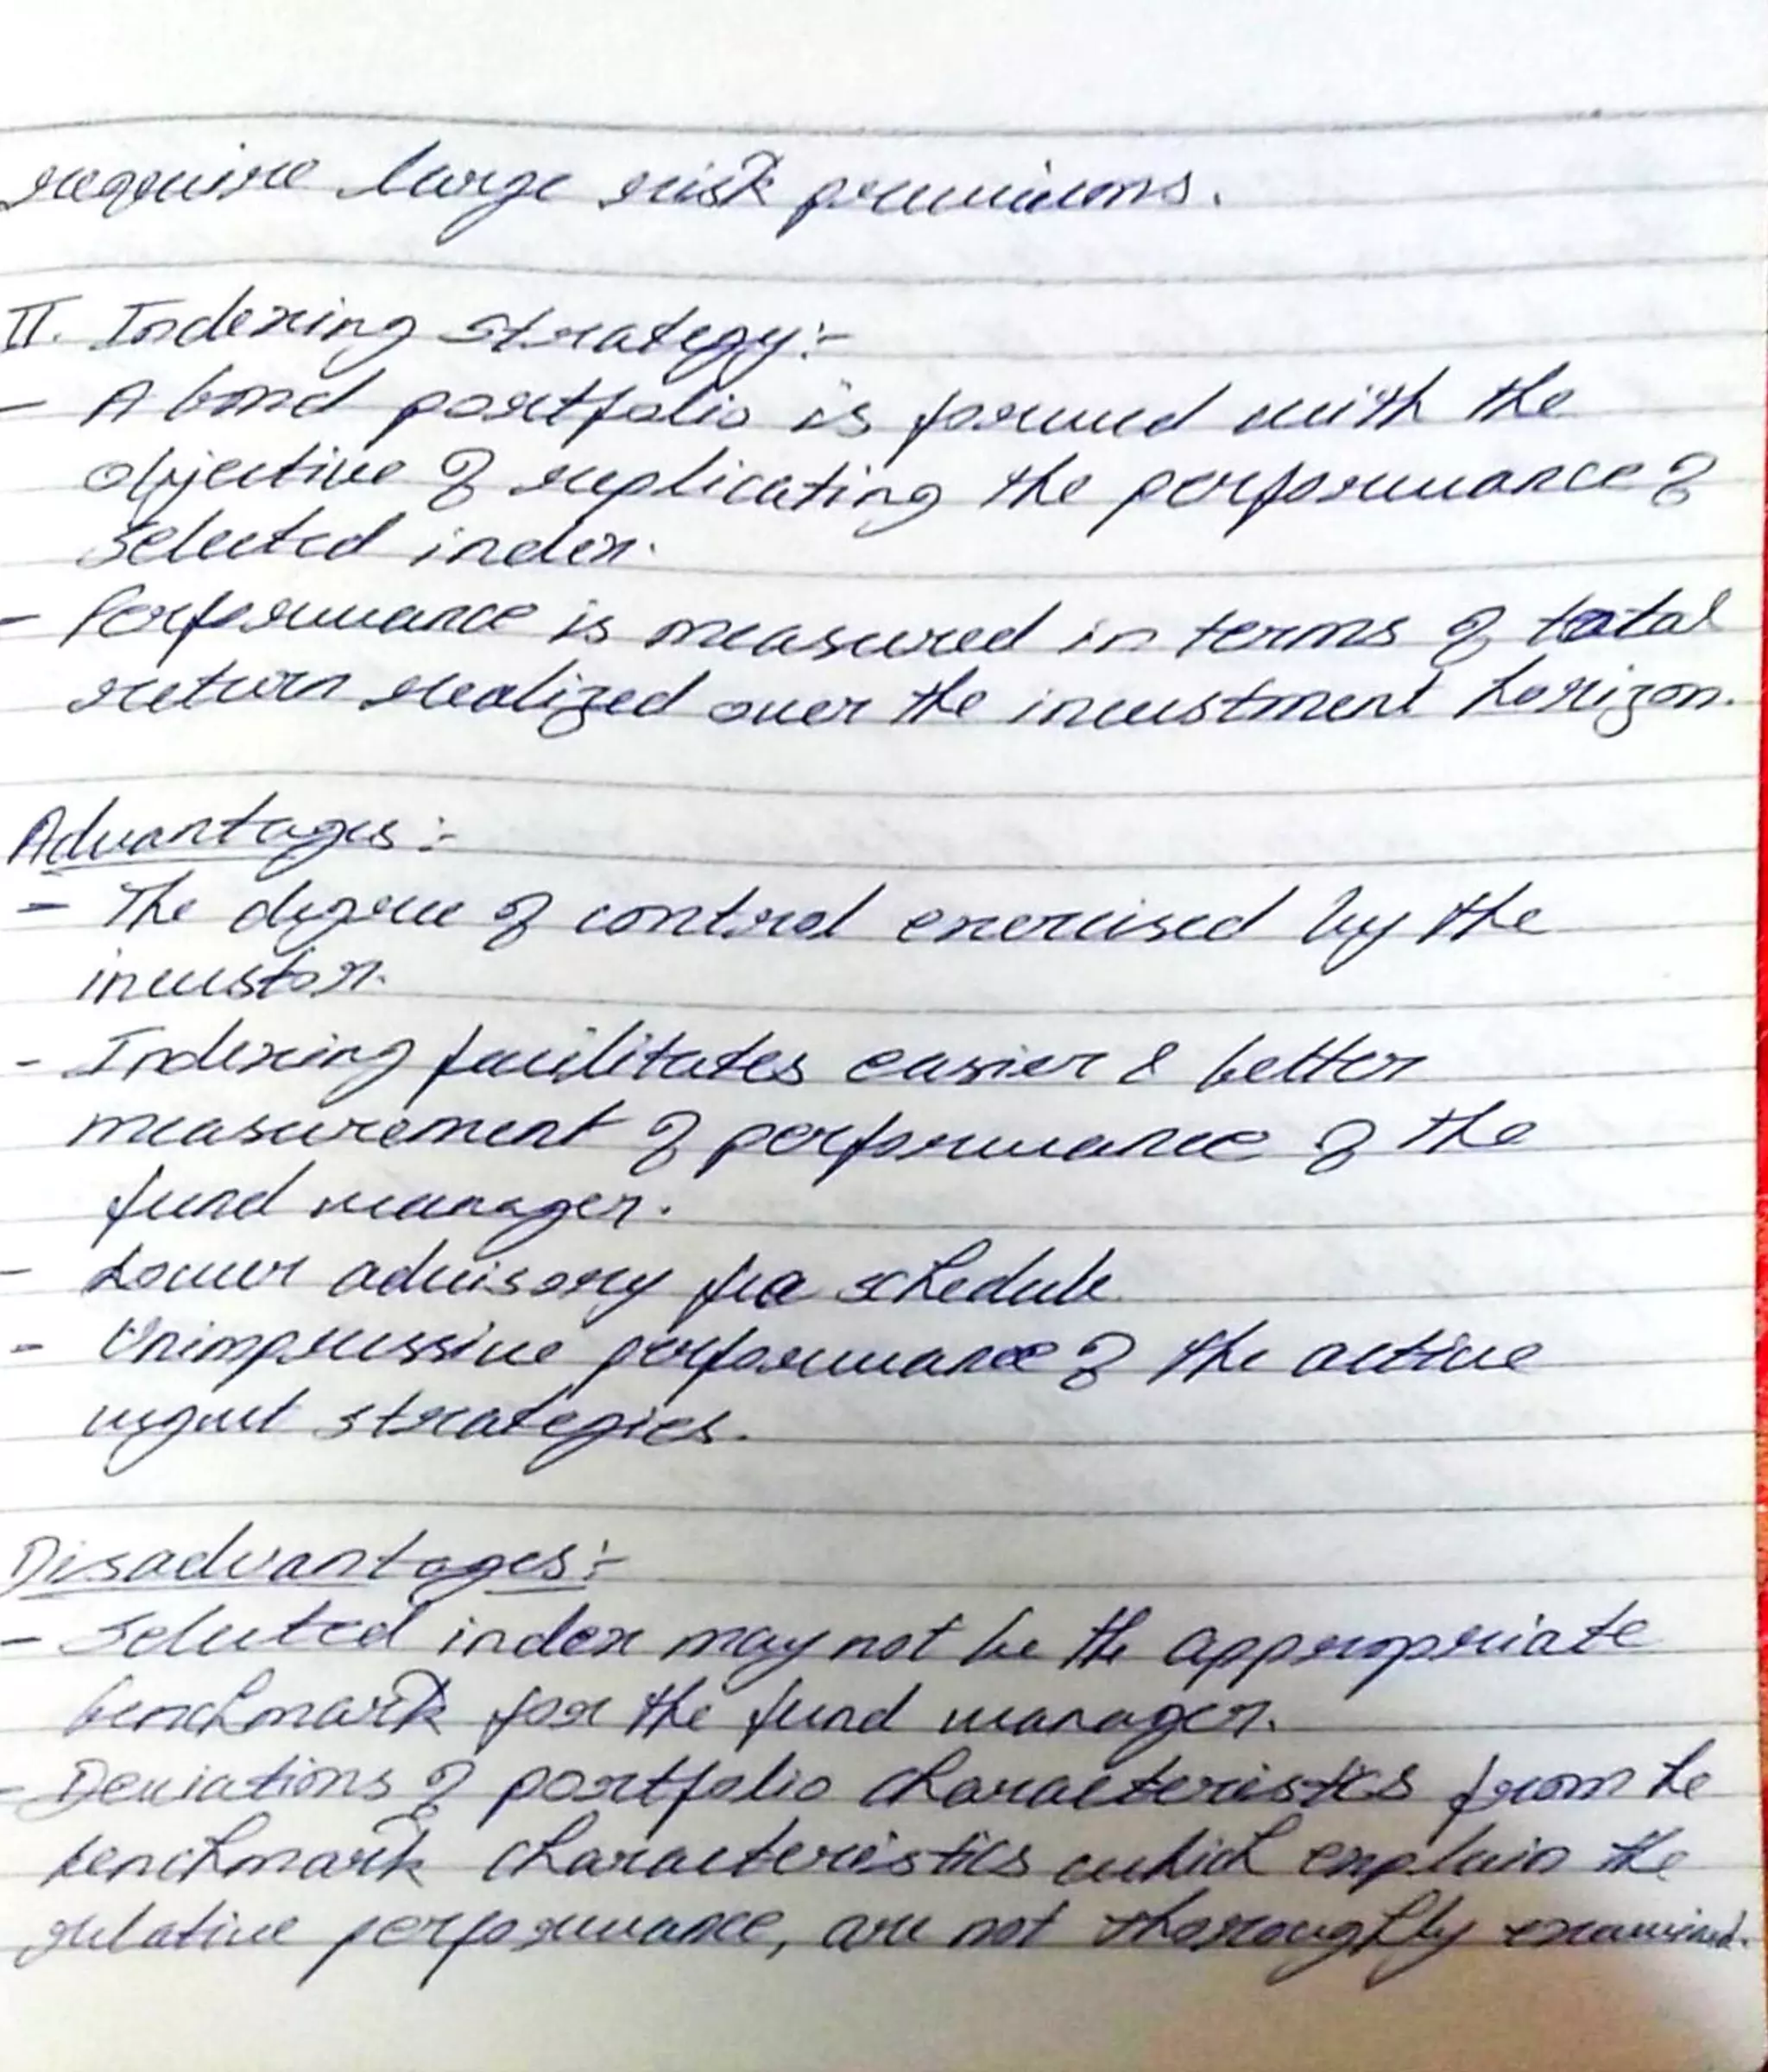 require large risk premiums.
II. Indexing strategy:-
- A bond portfolio is formed with the
objective of replicating the performance of
selected index.
- Performance is measured in terms of total
return realized over the investment horizon.
Advantages:-
- The degree of control exercised by the
investor.
- Indexing facilitates easier & better
measurement of performance of the
fund manager.
- Lower advisory fee schedule
- Unimpressive performance of the active
mgmt strategies.
Disadvantages:-
- Selected index may not be the appropriate
benchmark for the fund manager.
- Deviations of portfolio characteristics from the
benchmark characteristics which explain the
relative performance, are not thoroughly examined.